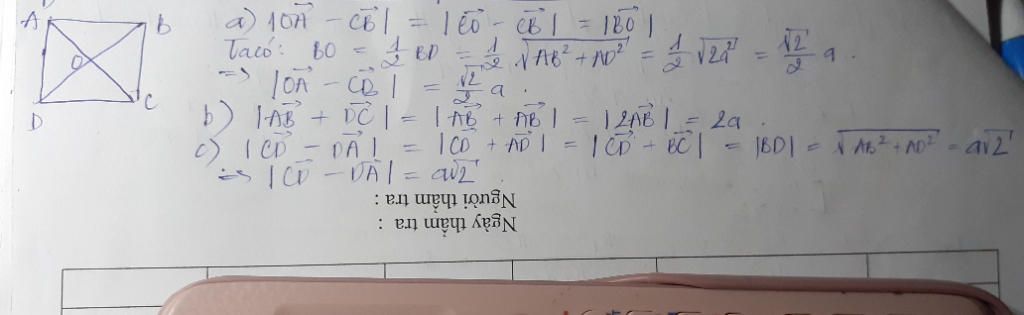 A B
O
D C
a) |OA⃗ - CB⃗| = |CO⃗ - CB⃗| = |BO⃗|
Ta có: BO = 1/2 BD = 1/2 √(AB² + AD²) = 1/2 √(2a²) = √2/2 a.
=> |OA⃗ - CB⃗| = √2/2 a.
b) |AB⃗ + DC⃗| = |AB⃗ + AB⃗| = |2AB⃗| = 2a.
c) |CD⃗ - DA⃗| = |CD⃗ + AD⃗| = |CD⃗ + BC⃗| = |BD| = √(AB² + AD²) = a√2
=> |CD⃗ - DA⃗| = a√2.
Người thẩm tra :
Ngày thẩm tra :